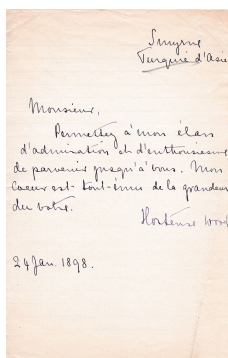 Smyrne
Turquie d'Asie
Monsieur,
Permettez à mon élan
d'admiration et d'enthousiasme
de parvenir jusqu'à vous. Mon
coeur est tout ému de la grandeur
du vôtre.
Hortense Wood
24 Jan. 1898.